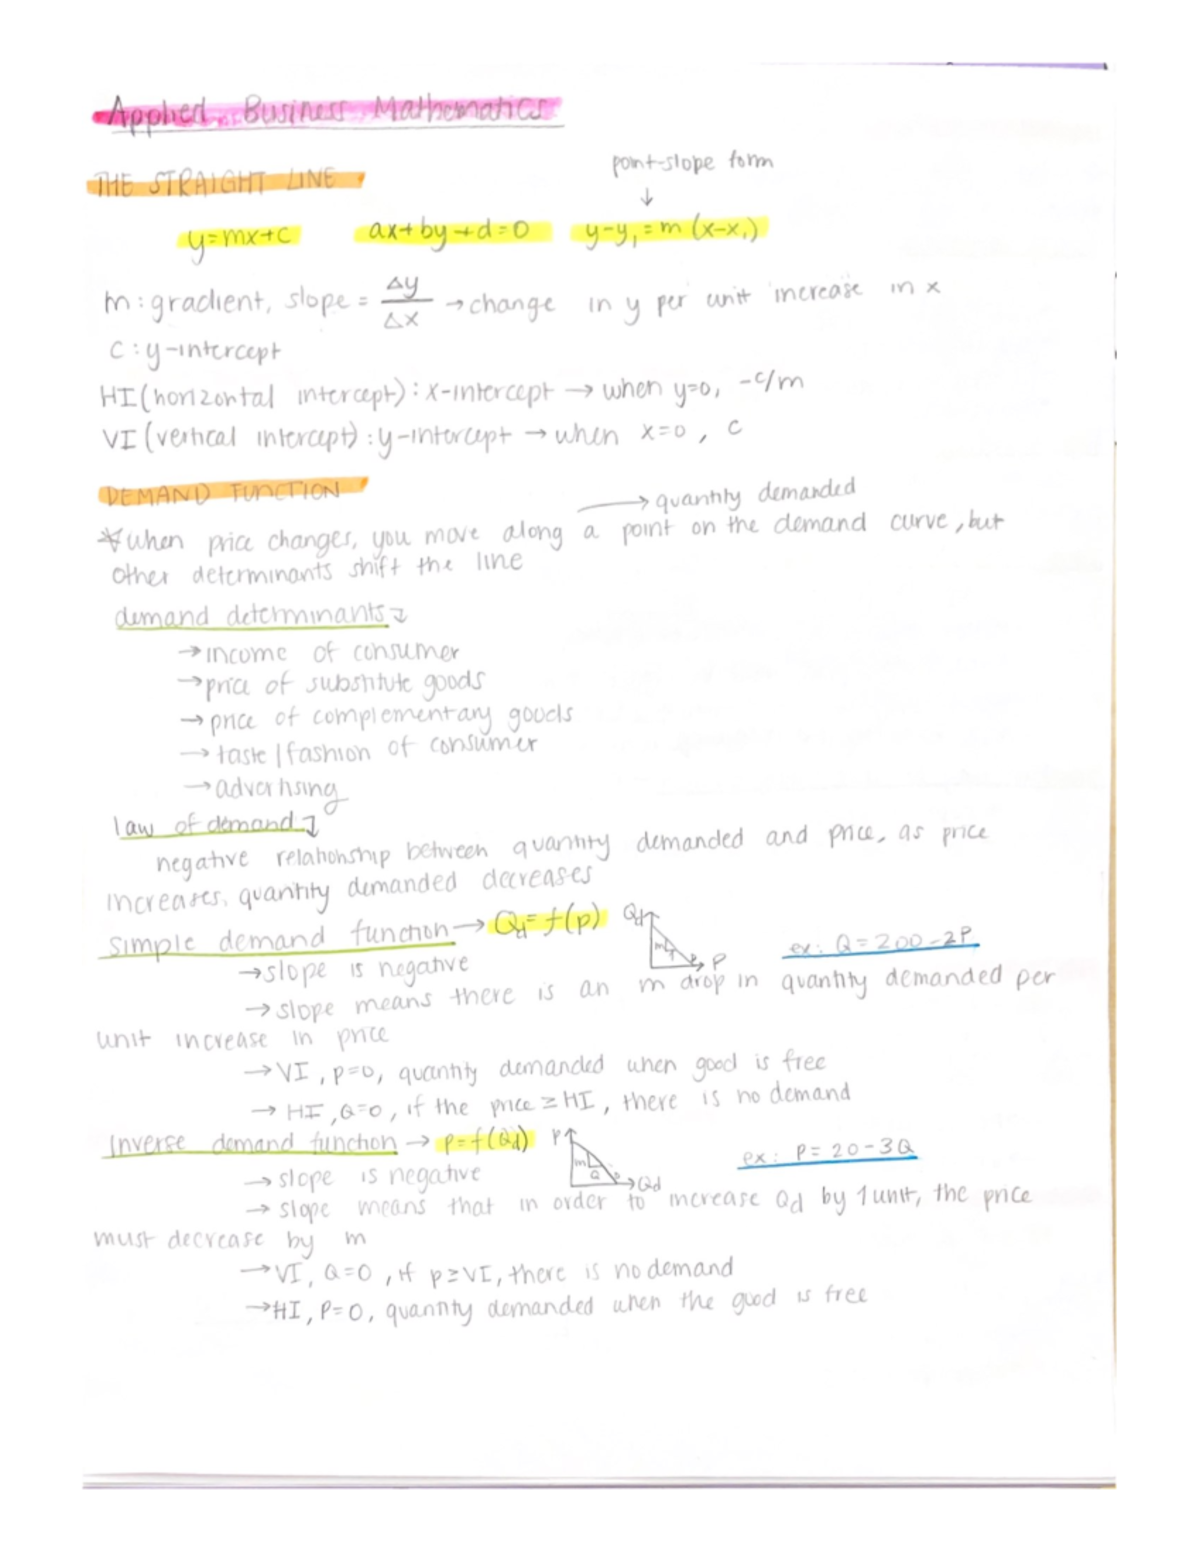 Applied Business Mathematics
THE STRAIGHT LINE
point-slope form
↓
y=mx+c ax+by+d=0 y-y₁=m(x-x₁)
m: gradient, slope = Δy/Δx → change in y per unit increase in x
c: y-intercept
HI (horizontal intercept): x-intercept → when y=0, -c/m
VI (vertical intercept): y-intercept → when x=0, c
DEMAND FUNCTION
→ quantity demanded
* when price changes, you move along a point on the demand curve, but
other determinants shift the line
demand determinants ↴
→ income of consumer
→ price of substitute goods
→ price of complementary goods
→ taste/fashion of consumer
→ advertising
law of demand ↴
negative relationship between quantity demanded and price, as price
increases, quantity demanded decreases
simple demand function → Qd=f(p) Qd P ex: Q=200-2P
→ slope is negative
→ slope means there is an m drop in quantity demanded per
unit increase in price
→ VI, p=0, quantity demanded when good is free
→ HI, Q=0, if the price ≥ HI, there is no demand
Inverse demand function → p=f(Qd) P Qd ex: P=20-3Q
→ slope is negative
→ slope means that in order to increase Qd by 1 unit, the price
must decrease by m
→ VI, Q=0, if p≥VI, there is no demand
→ HI, P=0, quantity demanded when the good is free